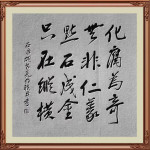 化腐為奇
無非仁義
點石成金
只在縱橫